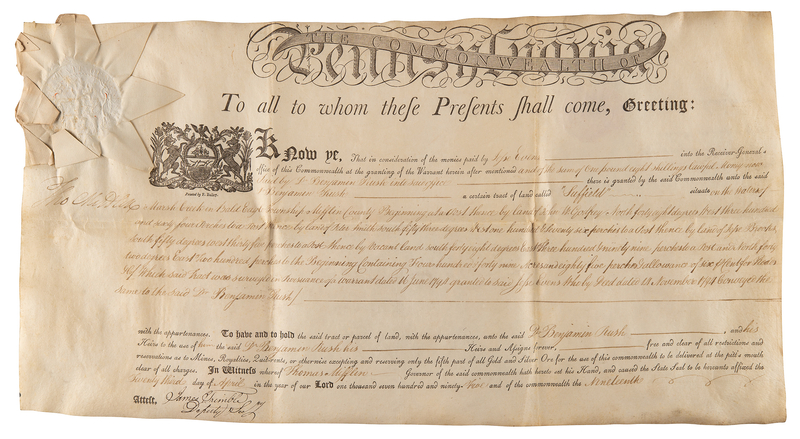 THE COMMONWEALTH OF
Pennsylvania
To all to whom theſe Preſents ſhall come, Greeting:
KNow ye, That in conſideration of the monies paid by Jeſse Evans into the Receiver-General's
office of this Commonwealth at the granting of the Warrant herein after mentioned and of the sum of One pound eight shillings Lawful Money
paid by Dr Benjamin Rush into said office there is granted by the ſaid Commonwealth unto the ſaid
Benjamin Rush a certain tract of land called "Suffield" ſituate on the waters of
Printed by F. Bailey.
Tho Mifflin
Marsh Creek in Bald Eagle Township Mifflin County Beginning at a Post thence by land of John McCauley North forty eight degrees West three hundred
and sixty four perches to a Post thence by land of Peter Smith South fifty three degrees West one hundred seventy six perches to a Post thence by land of Jeſse Brooks
South fifty degrees West thirty five perches to a Post thence by Vacant land South forty eight degrees East three hundred ninety nine perches to a Post and North forty
two degrees East two hundred perches to the Beginning Containing Four hundred forty nine acres and eighty five perches & allowance of six Cent for Roads
&c Which said tract was surveyed in pursuance of a warrant dated 16 June 1794 granted to said Jeſse Evans Who by Deed dated 18 November 1794 Conveyed the
same to the said Dr Benjamin Rush
with the appurtenances. To have and to hold the ſaid tract or parcel of land, with the appurtenances, unto the ſaid Dr Benjamin Rush and his
Heirs to the uſe of him the ſaid Dr Benjamin Rush his Heirs and Aſſigns forever, free and clear of all reſtrictions and
reſervations as to Mines, Royalties, Quit-rents, or otherwiſe excepting and reſerving only the fifth part of all Gold and Silver Ore for the uſe of this commonwealth to be delivered at the pit's mouth
clear of all charges. In Witness whereof Thomas Mifflin Governor of the ſaid commonwealth hath hereto ſet his Hand, and cauſed the State Seal to be hereunto affixed the
twenty third day of April in the year of our Lord one thouſand ſeven hundred and ninety-five and of the commonwealth the Nineteenth
Atteſt. James Trimble
Deputy Secy